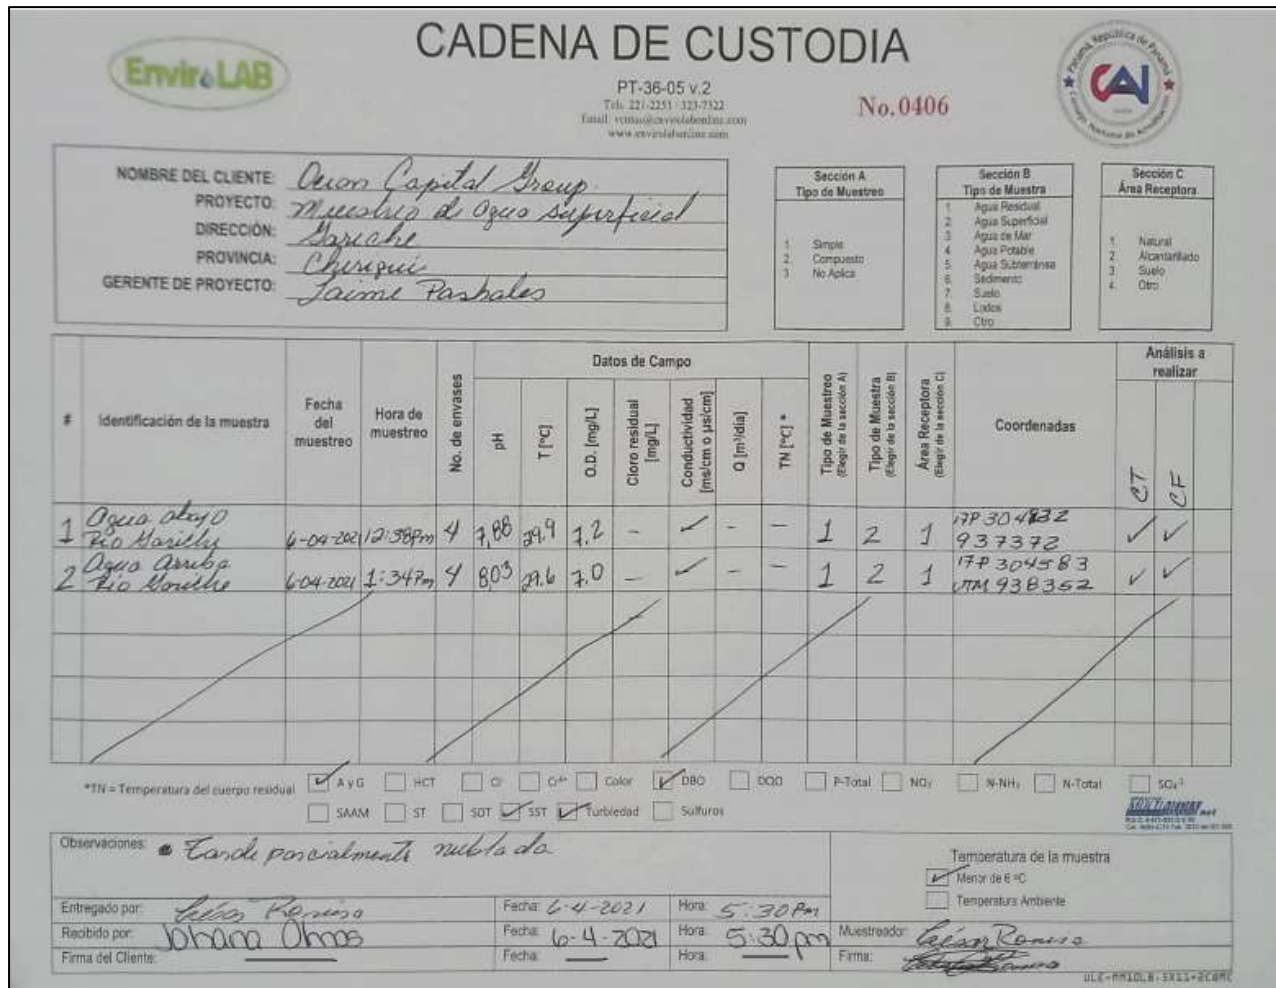 EnviroLAB
CADENA DE CUSTODIA
PT-36-05 v.2
Tels. 221-2253 / 323-7522
Email: ventas@envirolabonline.com
www.envirolabonline.com
No.0406
CNA
NOMBRE DEL CLIENTE: Capital Group
PROYECTO: Muestreo de Agua Superficial
DIRECCIÓN: Gariche
PROVINCIA: Chiriqui
GERENTE DE PROYECTO: Jaime Pashales
Sección A
Tipo de Muestreo
1. Simple
2. Compuesto
3. No Aplica
Sección B
Tipo de Muestra
1. Agua Residual
2. Agua Superficial
3. Agua de Mar
4. Agua Potable
5. Agua Subterránea
6. Sedimento
7. Suelo
8. Lodos
9. Otro
Sección C
Área Receptora
1. Natural
2. Alcantarillado
3. Suelo
4. Otro
Datos de Campo
Análisis a realizar
#
Identificación de la muestra
Fecha del muestreo
Hora de muestreo
No. de envases
pH
T [°C]
O.D. [mg/L]
Cloro residual [mg/L]
Conductividad [ms/cm o µs/cm]
Q [m³/día]
TN [°C] *
Tipo de Muestreo (Elegir de la sección A)
Tipo de Muestra (Elegir de la sección B)
Área Receptora (Elegir de la sección C)
Coordenadas
CT
CF
1 Agua abajo Rio Gariche 6-04-2021 12:38pm 4 7,88 29.9 7.2 – ✓ – – 1 2 1 17P 304832 937372 ✓ ✓
2 Agua Arriba Rio Gariche 6-04-2021 1:34pm 4 8,03 29.6 7.0 – ✓ – – 1 2 1 17P 304583 UTM 938352 ✓ ✓
*TN = Temperatura del cuerpo residual ✓ A y G HCT Cl Cr⁶⁺ Color ✓ DBO DQO P-Total NO₃ N-NH₃ N-Total SO₄⁻²
SAAM ST SDT ✓ SST ✓ Turbiedad Sulfuros
Observaciones: • Tarde parcialmente nublada
Temperatura de la muestra
✓ Menor de 6 °C
Temperatura Ambiente
Entregado por: César Fecha: 6-4-2021 Hora: 5:30 Pm
Recibido por: Johana Olmos Fecha: 6-4-2021 Hora: 5:30 pm Muestreador: César
Firma del Cliente: — Fecha: — Hora: — Firma: